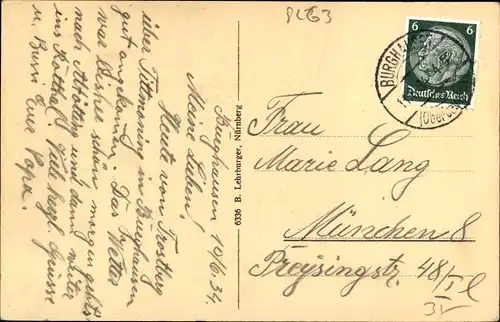 PLG3
Burghausen 10/6.34.
Meine Lieben!
Heute von Trostberg
über Tittmoning in Burghausen
gut angekommen. Das Wetter
war bisher schön morgen gehts
nach Altötting und dann weiter
ins Rottal. Viele herzl. Grüsse
u. Bussi Euer Papa.
6336 B. Lehrburger, Nürnberg
6 6
Deutsches Reich
BURGHAUSEN
(Oberbay
Frau
Marie Lang
München 8
Preysingstr. 48/I l